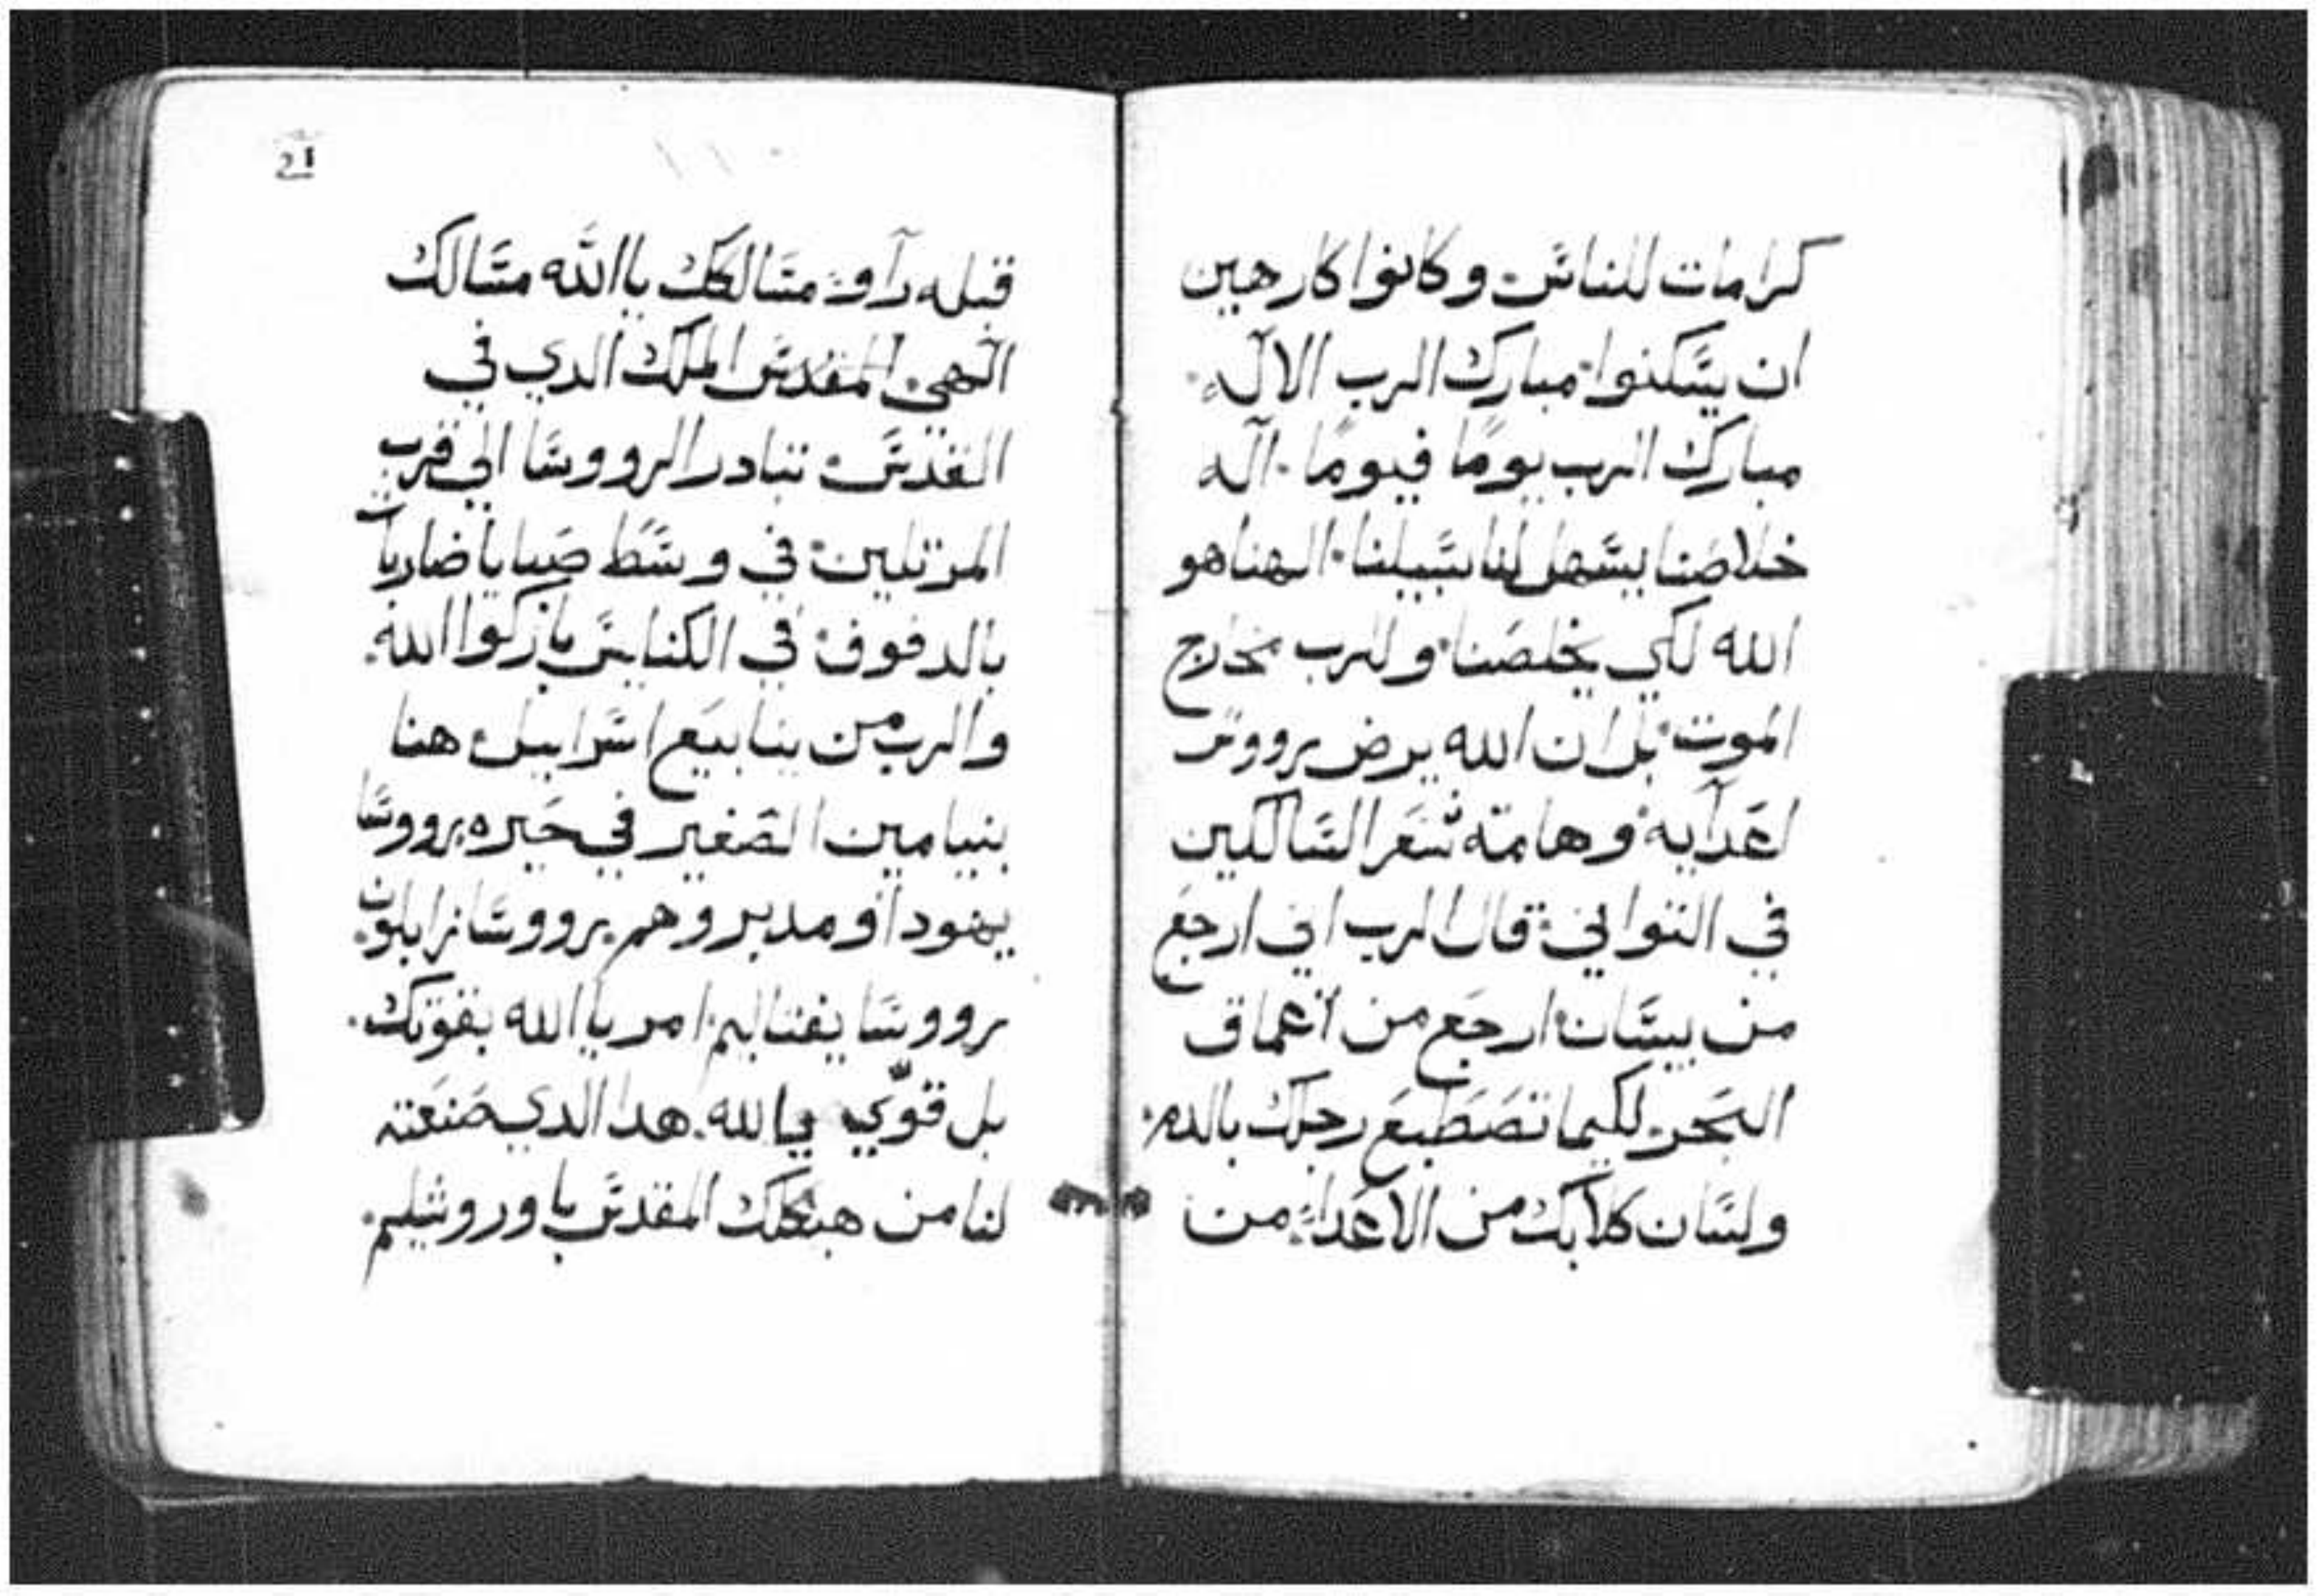 كرامات للناس وكانوا كارهين
ان يسكنوا مبارك الرب الاله
مبارك الرب يومًا فيومًا اله
خلاصنا يسهل لنا سبيلنا الهنا هو
الله لكي يخلصنا وللرب مخارج
الموت بل ان الله يرض رووس
اعدآيه وهامة شعر السالكين
في التواني قال الرب اني ارجع
من بيسان ارجع من أعماق
البحر لكيما تصطبع رجلك بالدم
ولسان كلابك من الاعداء من
21
قبله رآو مسالكك ياالله مسالك
الهي المقدس الملك الدي في
القدس تبادر الرووسا الي قرب
المرتلين في وسط صبايا ضاربات
بالدفوف في الكنايس باركوا الله
والرب من ينابيع اسراييل هنا
بنيامين الصغير في حيره رووسا
يهودا ومدبروهم رووسا زابلون
رووسا يفتاليم امر ياالله بقوتك
بل قوّي ياالله هدا الدي صنعته
لنا من هيكلك المقدس باوروشليم